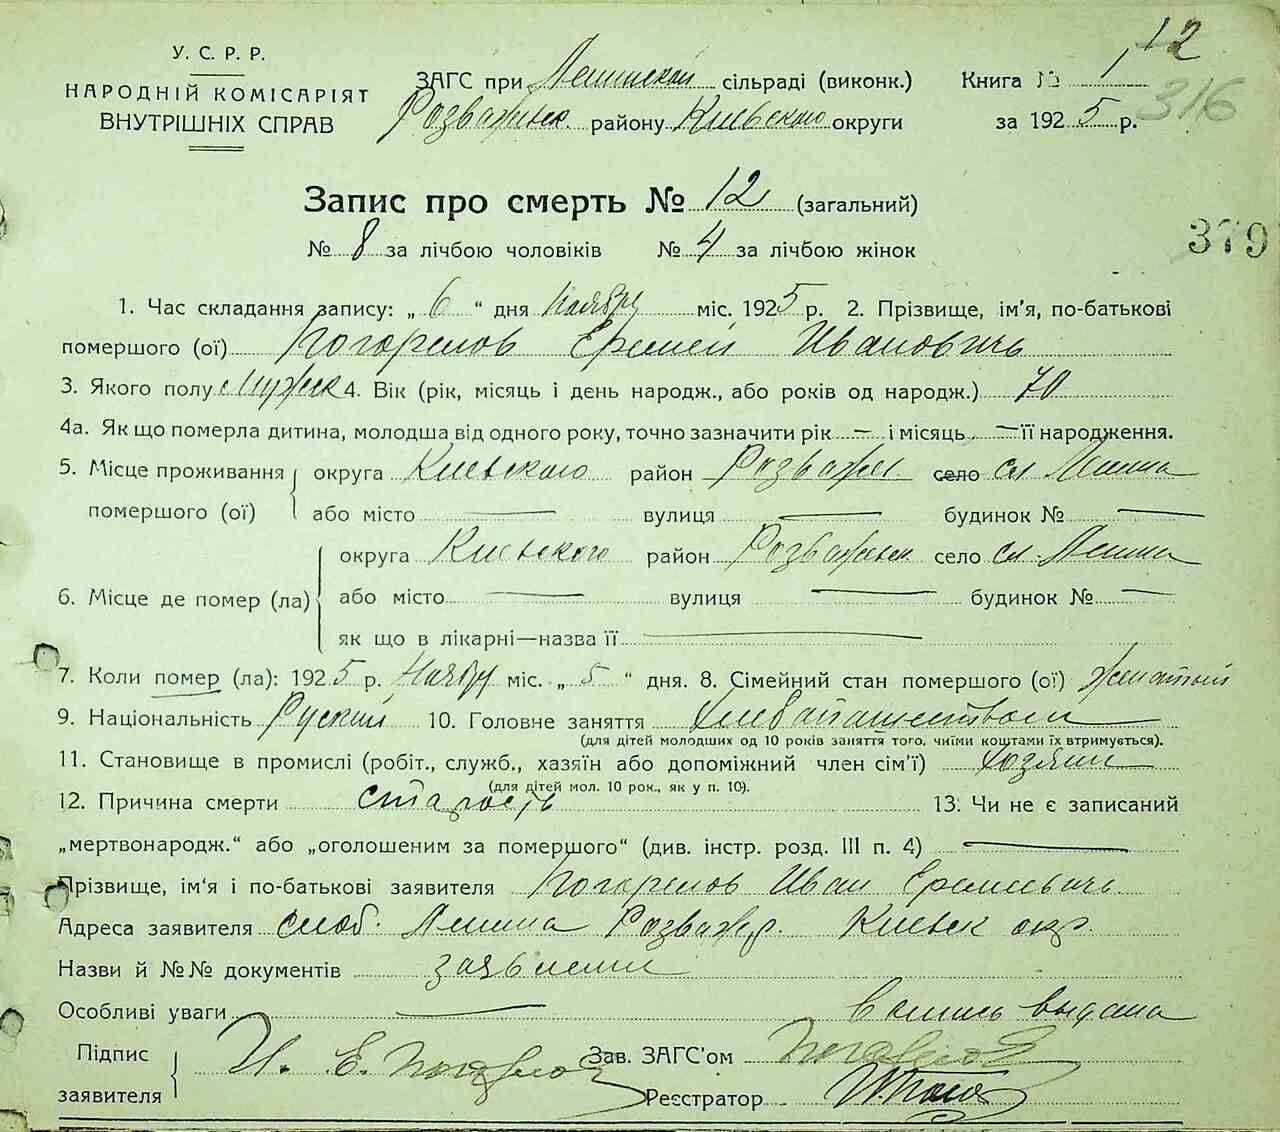 12
316
379
У. С. Р. Р.
НАРОДНІЙ КОМІСАРІЯТ
ВНУТРІШНІХ СПРАВ
ЗАГС при сільраді (виконк.) Книга № 1
Розважівск. району Киевского округи за 1925 р.
Запис про смерть № 12 (загальний)
№ 8 за лічбою чоловіків № 4 за лічбою жінок
1. Час складання запису: „ 6 “ дня Ноября міс. 1925 р. 2. Прізвище, ім'я, по-батькові
помершого (ої) Погорелов Еремей Иванович
3. Якого полу Мужск 4. Вік (рік, місяць і день народж., або років од народж.) 70
4а. Як що померла дитина, молодша від одного року, точно зазначити рік — і місяць — її народження.
5. Місце проживання помершого (ої) округа Киевского район Розважев село сл
або місто — вулиця — будинок № —
6. Місце де помер (ла) округа Киевского район Розважевск село сл.
або місто — вулиця — будинок № —
як що в лікарні—назва її —
7. Коли помер (ла): 1925 р. Ноябр міс. „ 5 “ дня. 8. Сімейний стан помершого (ої) женатый
9. Національність Руский 10. Головне заняття
(для дітей молодших од 10 років заняття того, чиїми коштами їх втримується).
11. Становище в промислі (робіт., служб., хазяїн або допоміжний член сім'ї) Хозяин
(для дітей мол. 10 рок., як у п. 10).
12. Причина смерти старость 13. Чи не є записаний
„мертвонародж.“ або „оголошеним за помершого“ (див. інстр. розд. III п. 4) —
Прізвище, ім'я і по-батькові заявителя Погорелов Иван Еремеевичь
Адреса заявителя слоб. Розваж р. Киевск окр.
Назви й №№ документів заявление
Особливі уваги — выдана
Підпис заявителя И. Е. Погорелов Зав. ЗАГС'ом Погорелов
Реєстратор